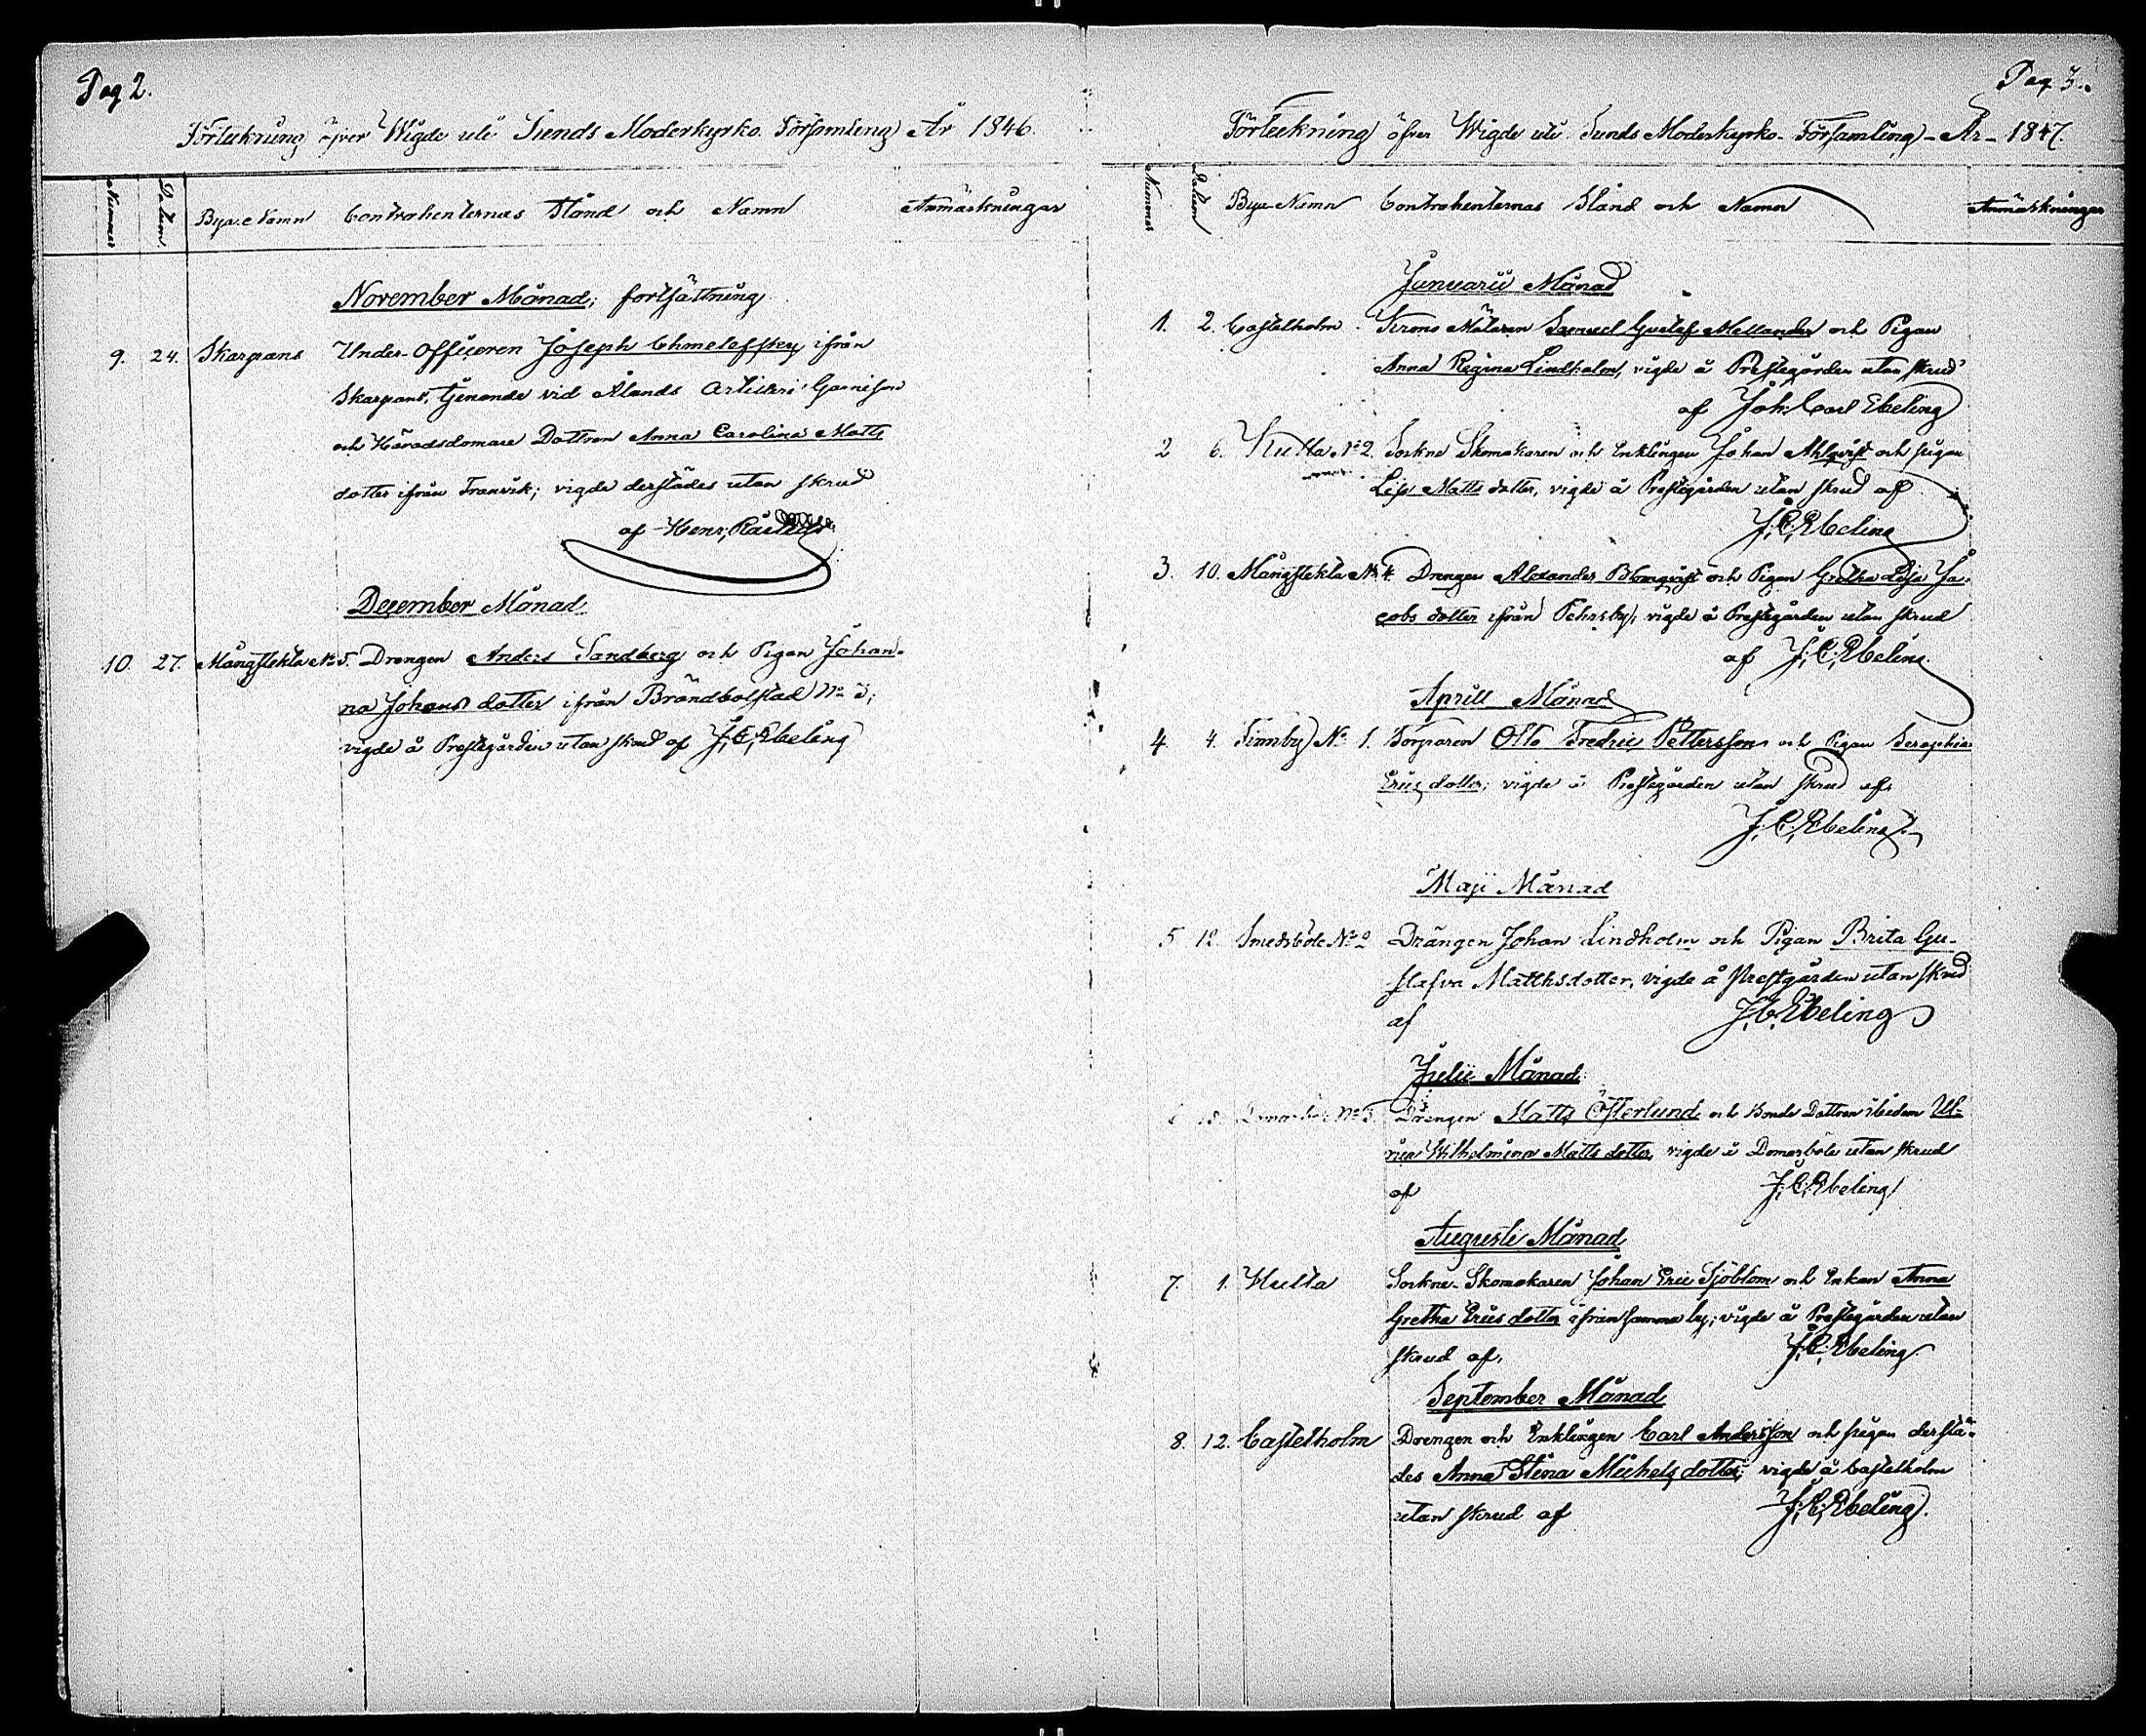 Pag 2.
Förteckning öfver Wigde uti Sunds Moderkyrko Församling År 1846.
Nummer Datum Bya Namn Contrahenternas Stånd och Namn Anmärkningar
November Månad, fortsättning
9. 24. Skarpans Under-Officeren Joseph Chmeleffsky ifrån
Skarpans, tjenande vid Ålands Artilleri Garnison
och Häradsdomare Dottren Anna Carolina Matts
dotter ifrån Tranvik; vigde derstädes utan skrud
af Henr;
December Månad
10. 27. Mångstekta No 5. Drengen Anders Sandberg och Pigan Johan-
na Johans dotter ifrån Brändbolstad No 3;
vigde å Prestegården utan skrud af J; C; Ebeling
Pag 3.
Förteckning öfver Wigde uti Sunds Moderkyrko Församling - År - 1847.
Nummer Datum Bya Namn Contrahenternas Stånd och Namn Anmärkningar
Januarii Månad
1. 2. Castelholm. Krono Mätaren Samuel Gustaf Mellander och Pigan
Anna Regina Lindholm, vigde å Prestegården utan skrud
af Joh: Carl Ebeling
2 6. Hulta No 2. Sockne Skomakaren och Enklingen Johan Ahlqvist och pigan
Lisa Matts dotter, vigde å Prestegården utan skrud af
J; C; Ebeling
3. 10. Mångstekta No 4. Drengen Alexander Blomqvist och Pigan Gretha Lisa Ja-
cobs dotter ifrån Pehrsby; vigde å Prestegården utan skrud
af J; C; Ebeling.
Aprill Månad
4 4. Finnby No 1. Torparen Otto Fredric Pettersson och Pigan Seraphia
Erics dotter; vigde å Prestegården utan skrud af
J; C; Ebeling.
Maji Månad
5 12. Smedsböle No 2 Drängen Johan Lindholm och Pigan Brita Gu-
stafva Matthsdotter, vigde å Prestgården utan skrud
af J. C. Ebeling
Julii Månad
6 18. Domarböle No 3. Drengen Matts Österlund och Bonde Dottren ibidem Ul-
rica Wilhelmina Matts dotter, vigde å Domarböle utan skrud
af J; C; Ebeling
Augusti Månad
7. 1. Hulta Sockne-Skomakaren Johan Eric Sjöblom och Enkan Anna
Gretha Erics dotter ifrån samma by; vigde å Prestegården utan
skrud af, J; C; Ebeling
September Månad
8. 12. Castelholm Drengen och Enklingen Carl Andersson och pigan derstä-
des Anna Stina Michels dotter; vigde å Castelholm
utan skrud af J; C; Ebeling.